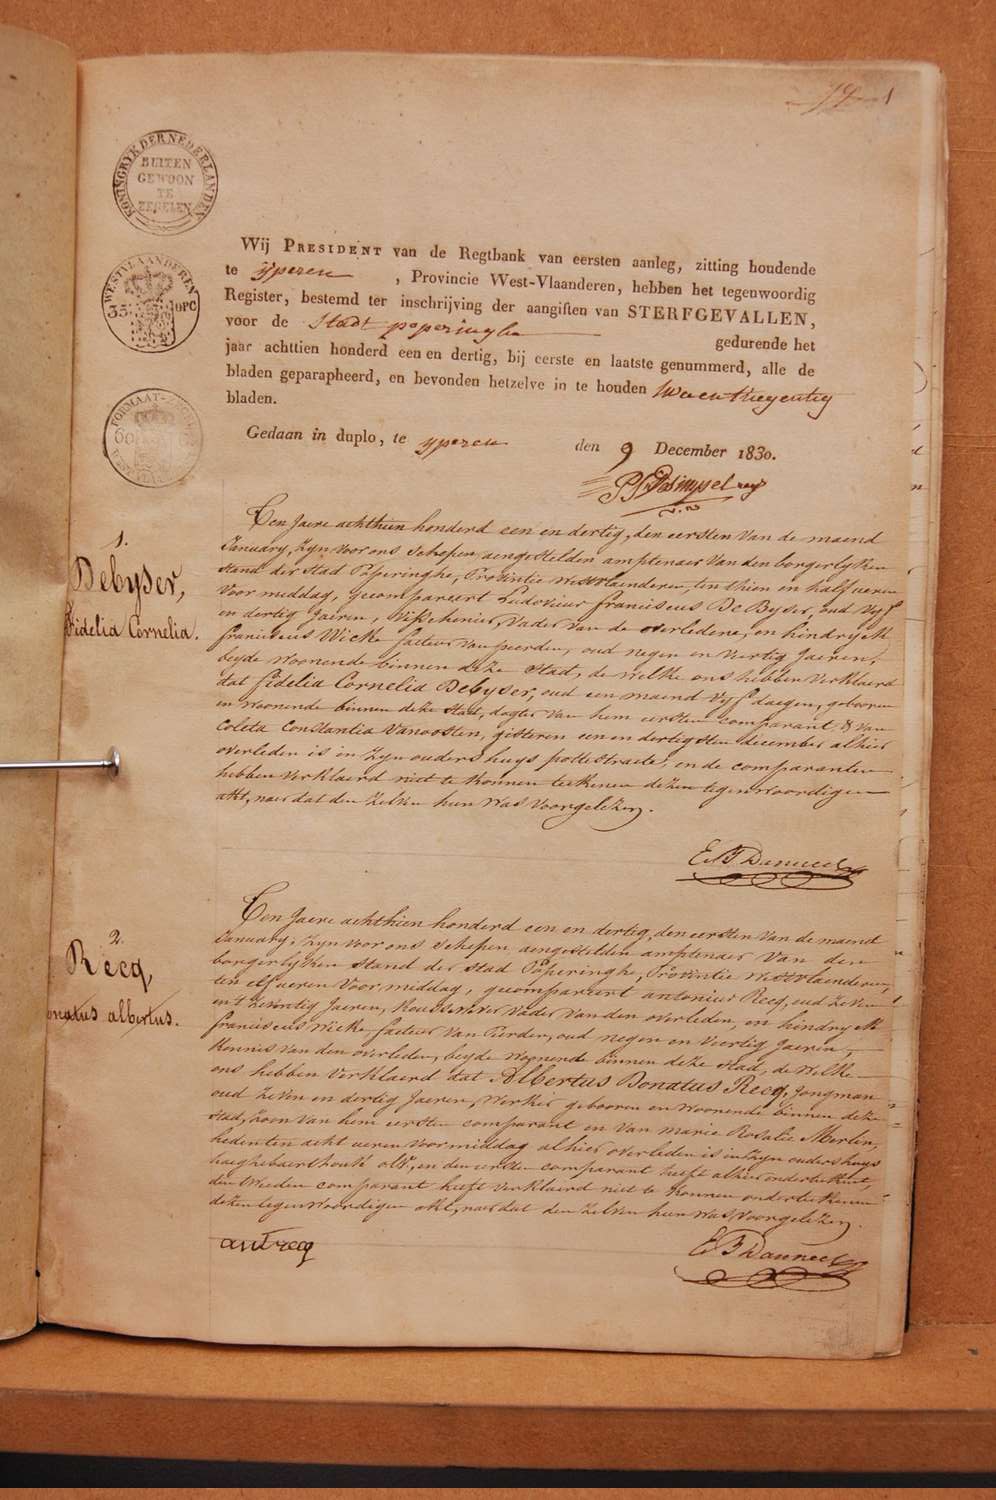 1
KONINGRYK DER NEDERLANDEN
BUITEN
GEWOON
TE
ZEGELEN
WEST VLAANDEREN
35 OPC
FORMAAT-ZEGEL
60
Wij PRESIDENT van de Regtbank van eersten aanleg, zitting houdende
te yperen , Provincie West-Vlaanderen, hebben het tegenwoordig
Register, bestemd ter inschrijving der aangiften van STERFGEVALLEN,
voor de Stadt poperinghe gedurende het
jaar achttien honderd een en dertig, bij eerste en laatste genummerd, alle de
bladen geparapheerd, en bevonden hetzelve in te houden twee en tnegentig
bladen.
Gedaan in duplo, te yperen den 9 December 1830.
1.
Debyser,
Fidelia Cornelia.
Een Jaere achthien honderd een en dertig, den eersten van de maend
January, Zyn voor ons Schepen aengestelden amptenaer van den borgerlyken
stand der stad Poperinghe, Provintie westvlaenderen, ten thien en half ueren
voor middag, gecompareert Ludovicus franciscus De Byser, oud vyf
en dertig Jaeren, vader van de overledene, en hindryck
franciscus Wicke facteur van peerden, oud negen en viertig Jaeren,
beyde woonende binnen deze stad, de welke ons hebben verklaerd
dat fidelia Cornelia Debyser, oud een maend vyf daegen, gebooren
en woonende binnen deze stad, dogter van hem eersten comparant & van
Coleta Constantia Vanoosten, gisteren een en dertigsten december alhier
overleden is in Zyn ouders huys pottestraete, en de comparanten
hebben verklaerd niet te konnen teekenen dezen tegenwoordigen
akt, naer dat den Zelven hun was voorgelezen.
E. F. Danneel
2.
Recq,
onatus albertus.
Een Jaere achthien honderd een en dertig, den eersten van de maend
January, Zyn voor ons Schepen aengestelden amptenaer van den
borgerlyken stand der stad Poperinghe, Provintie westvlaenderen,
ten elf ueren voor middag, gecompareert antonius Recq, oud Zeven
en 't Zeventig Jaeren, vader van den overleden, en hindryck
franciscus Wicke facteur van Peirden, oud negen en viertig Jaeren,
Kennis van den overleden, beyde woonende binnen deze stad, de welke
ons hebben verklaerd dat Albertus Donatus Recq, Jongman
oud Zeven en dertig Jaeren, Werker gebooren en woonende binnen deze
stad, Zoon van hem eersten comparant en van marie Rosalie Merlin,
heden ten acht ueren voormiddag alhier overleden is in Zyn ouders huys
en den eersten comparant heeft alhier onderteekent,
den tweeden comparant heeft verklaerd niet te konnen onderteekenen
dezen tegenwoordigen akt, naer dat den Zelven hun was voorgelezen.
ant recq
E. F. Danneel